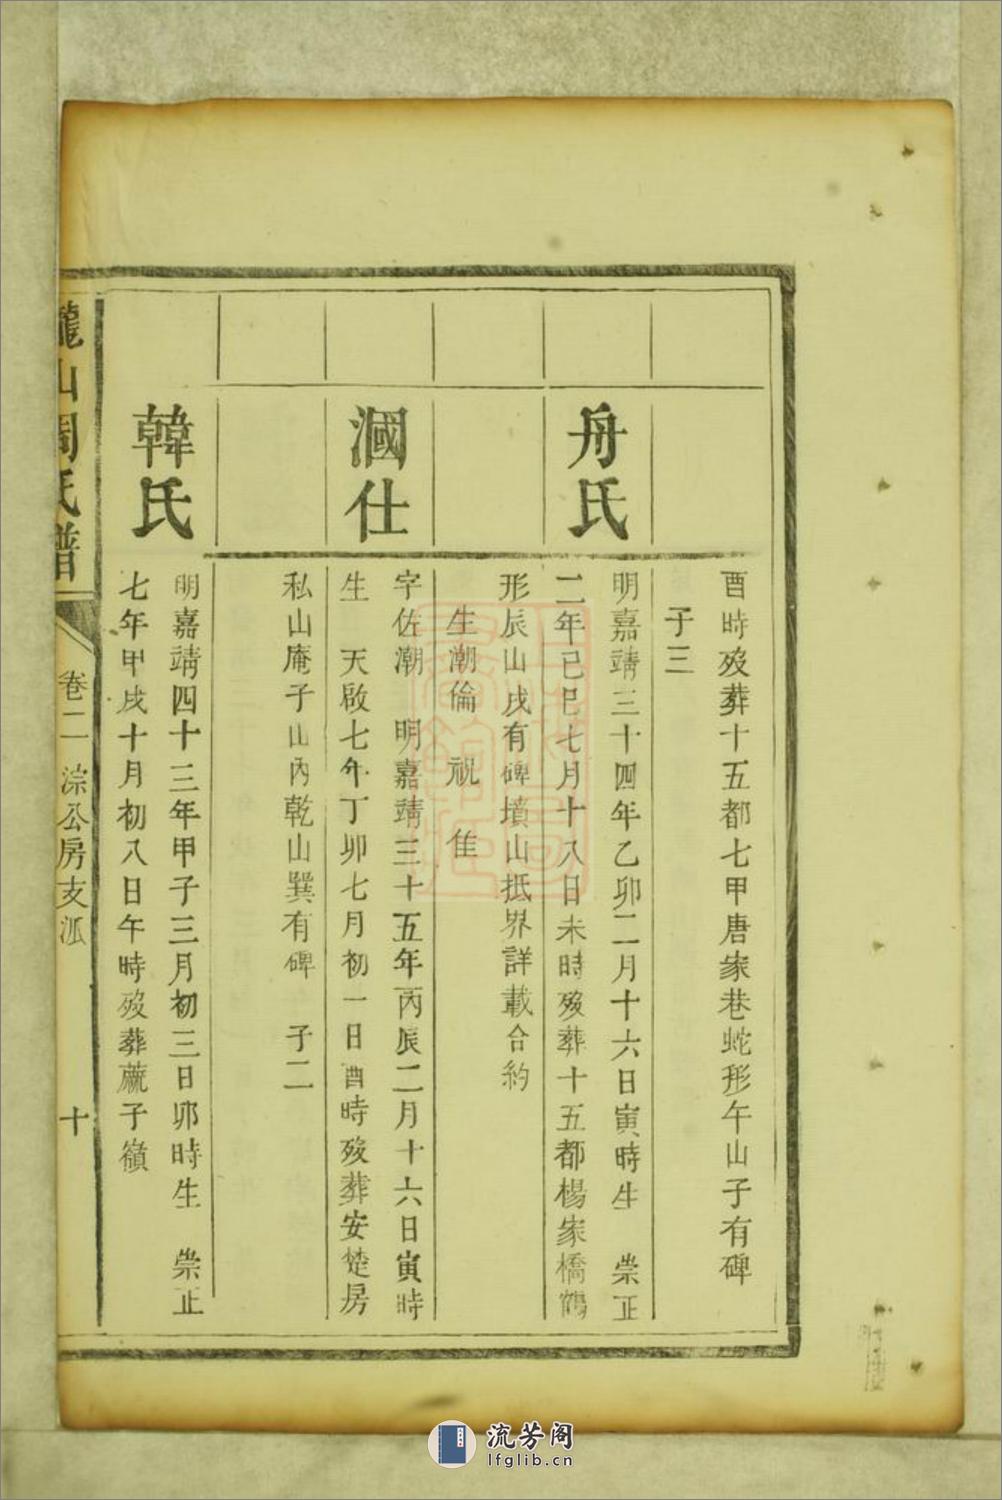 酉時歿葬十五都七甲唐家巷蛇形午山子有碑
子三
舟氏
明嘉靖三十四年乙卯二月十六日寅時生 崇正
二年己巳七月十八日未時歿葬十五都楊家橋鶴
形辰山戌有碑墳山抵界詳載合約
生潮倫 祝 隹
漍仕
字佐潮 明嘉靖三十五年丙辰二月十六日寅時
生 天啟七年丁卯七月初一日酉時歿葬安楚房
私山庵子山內乾山巽有碑 子二
韓氏
明嘉靖四十三年甲子三月初三日卯時生 崇正
七年甲戌十月初八日午時歿葬蔴子嶺
龍山周氏譜
卷二 淙公房支派
十
流芳阁
lfglib.cn